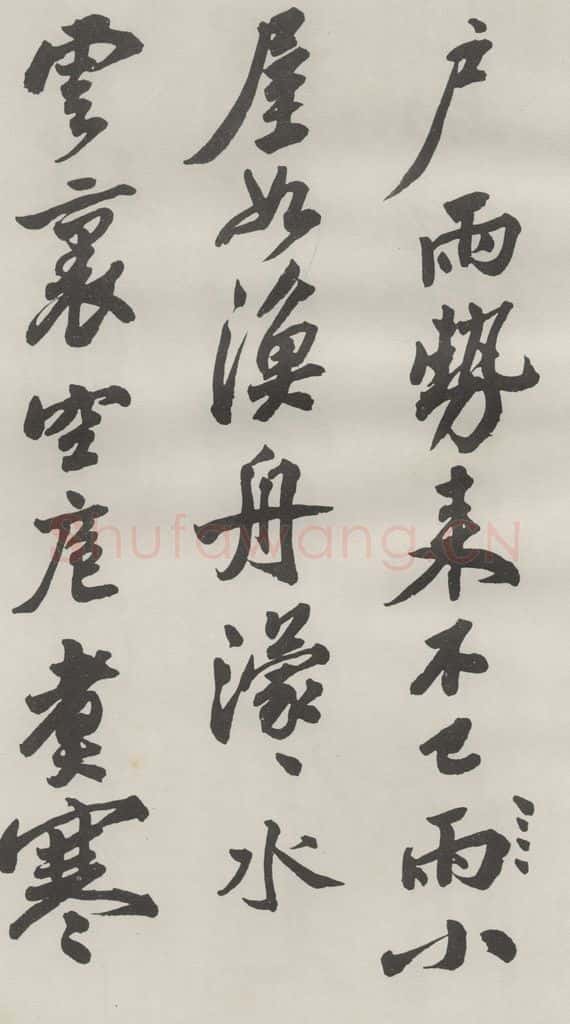 户雨勢来不已雨小
屋如漁舟濛々水
雲裏空庖煮寒
Shufawang.CN